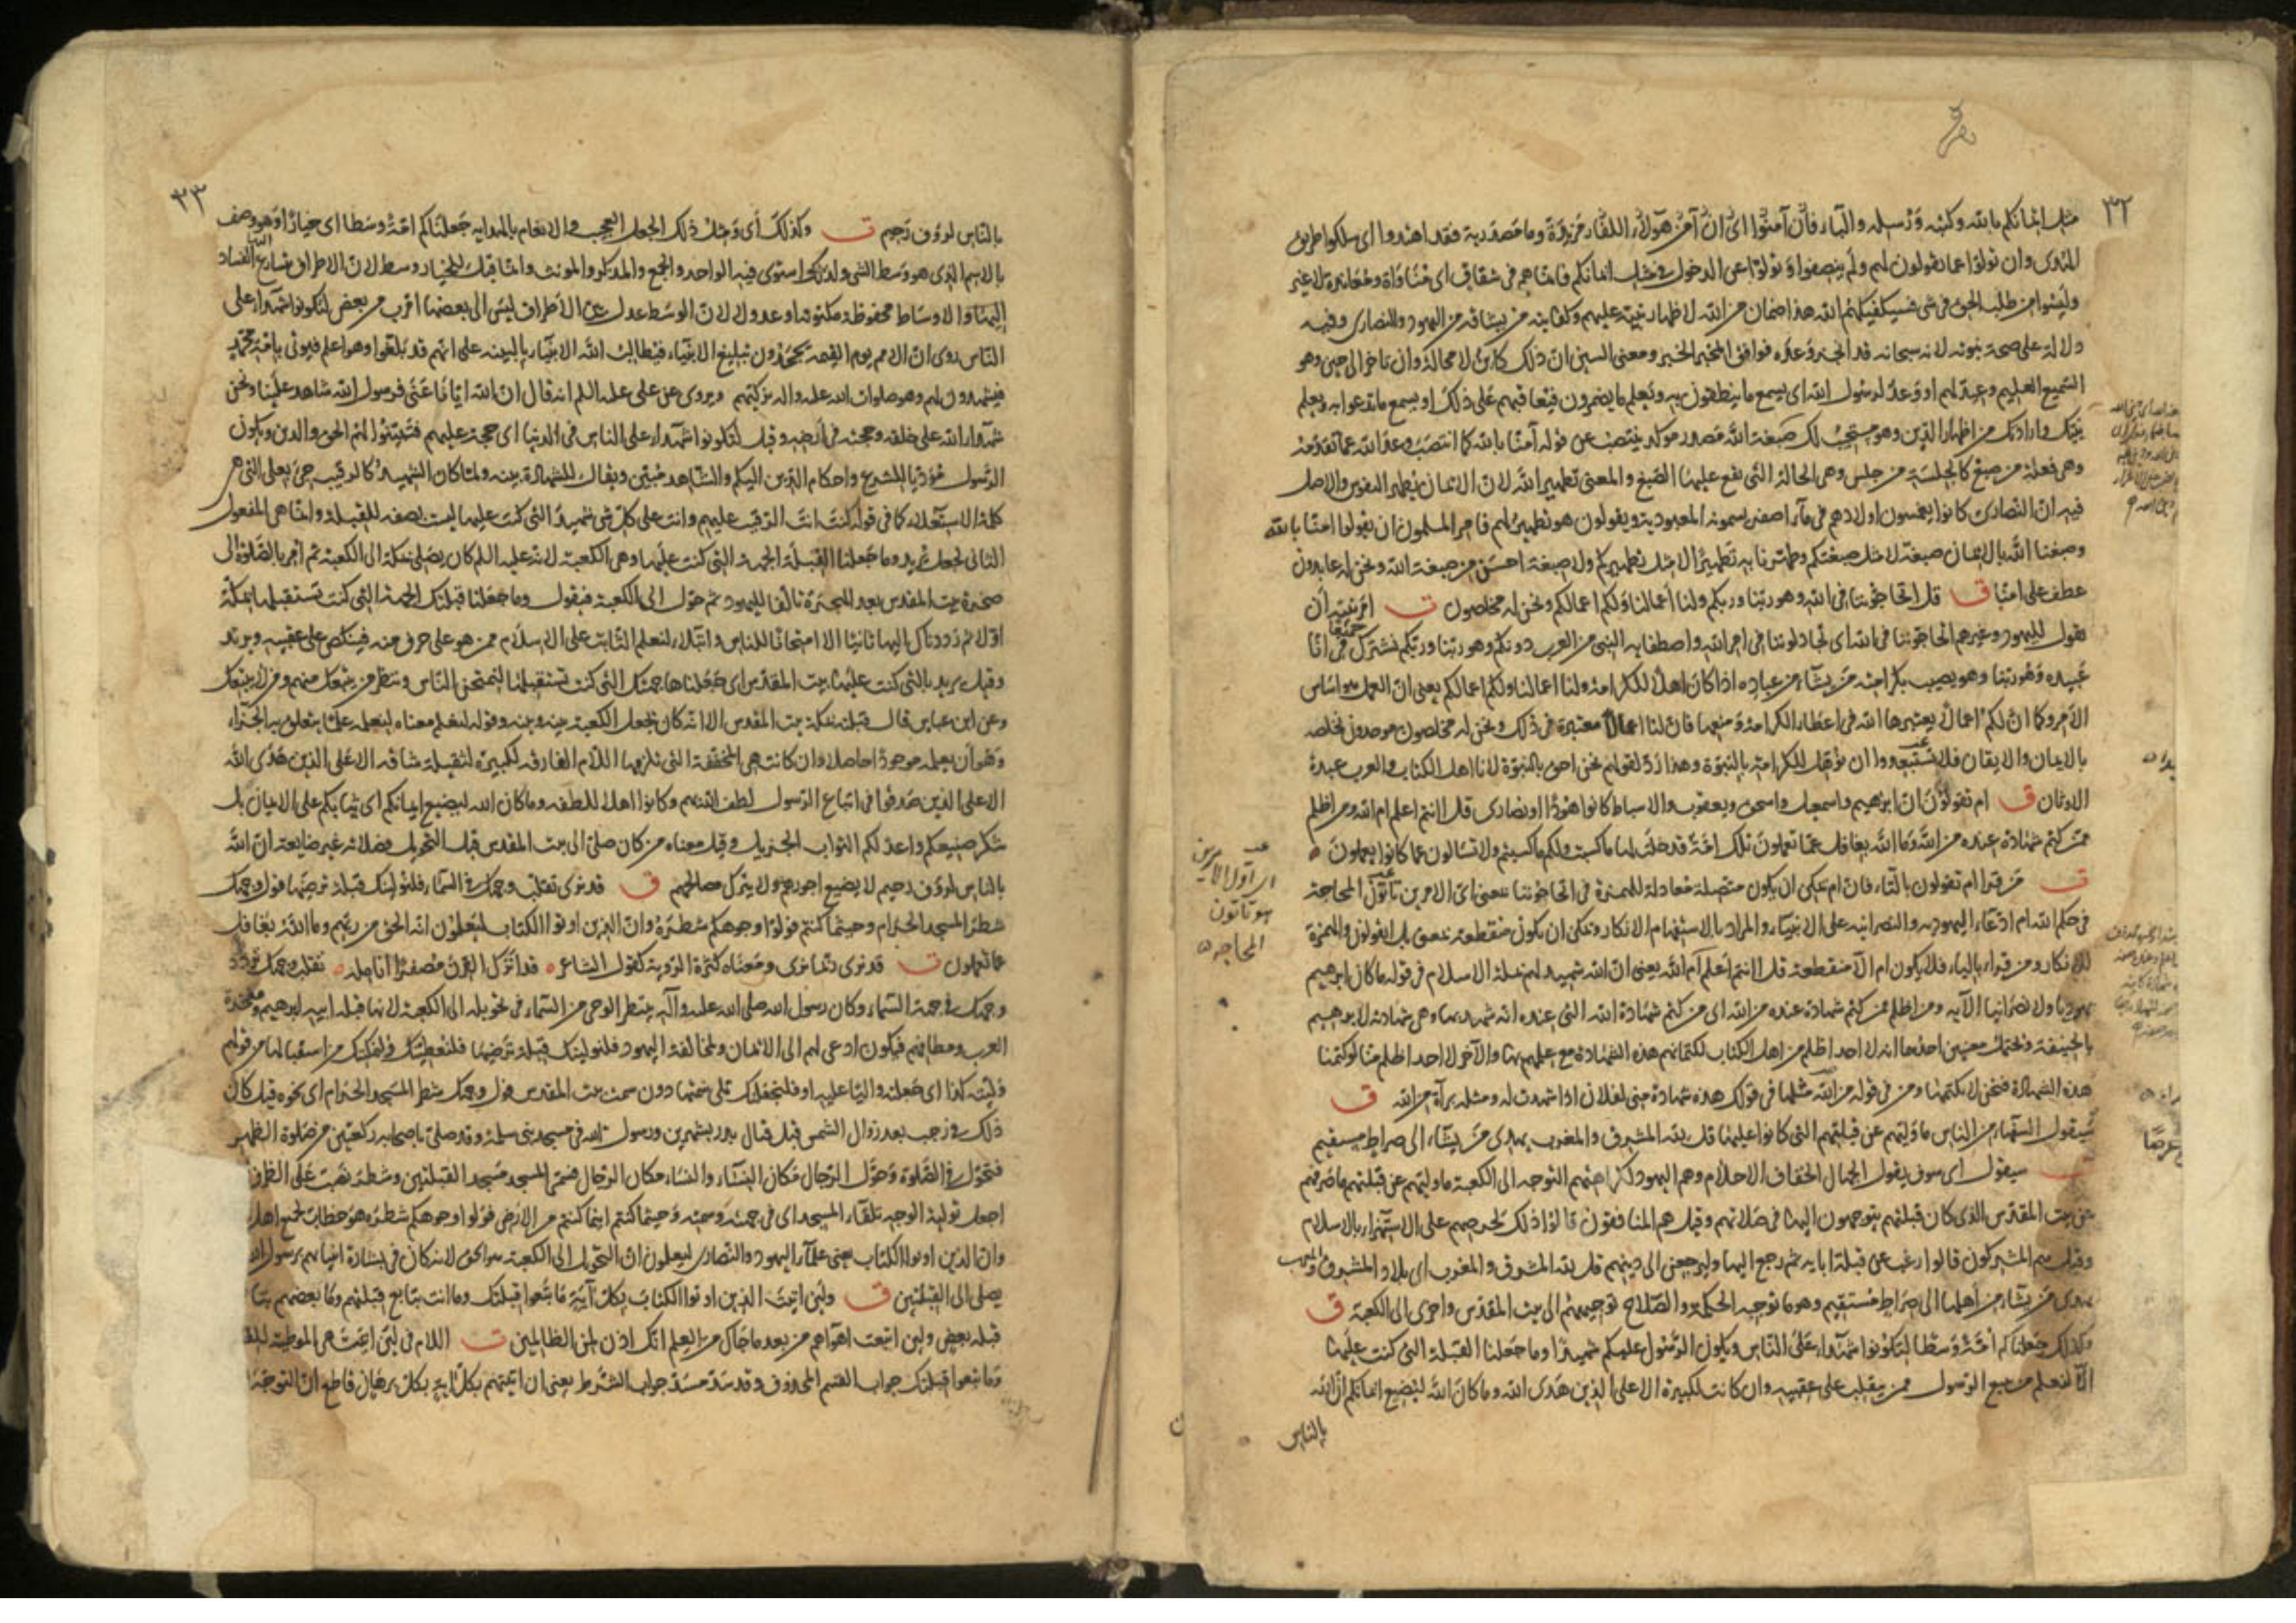 ٣٢
مثل ايمانكم بالله وكتبه ورسله والباء زائدة فان آمنوا اى ان آمن هؤلاء الكفار مزيدة وما مصدرية فقد اهتدوا اى سلكوا طريق
الهدى وان تولوا عما تقولون لهم ولم ينصفوا او تولوا عن الدخول فى مثل ايمانكم فانما هم فى شقاق اى مناواة ومعاندة لا غير
وليسوا من طلب الحق فى شى فسيكفيكهم الله هذا ضمان من الله لاظهار نبيه عليهم وكفايته من يشاقه من اليهود والنصارى وفيه
دلالة على صحة نبوته لانه سبحانه قد انجز وعده فوافق المخبر الخبر ومعنى السين ان ذلك كاين لا محالة وان تاخر الى حين وهو
السميع العليم وعيد لهم او وعد لرسول الله اى يسمع ما ينطقون به ويعلم ما يضمرون فيعاقبهم على ذلك او يسمع ما تدعو به ويعلم
نيتك وارادتك من اظهار الدين وهو مستجيب لك صبغة الله مصدر موكد ينتصب عن قوله آمنا بالله كما انتصب وعد الله عما تقدمه
وهى فعلة من صبغ كالجلسة من جلس وهى الحالة التى يقع عليها الصبغ والمعنى تطهير الله لان الايمان يطهر النفوس والاصل
فيه ان النصارى كانوا يغمسون اولادهم فى ماء اصفر يسمونه المعمودية ويقولون هو تطهير لهم فامر المسلمون ان يقولوا امنا بالله
وصبغنا الله بالايمان صبغة لا مثل صبغتكم وطهرنا به تطهيرا لا مثل تطهيركم ولا صبغة احسن من صبغة الله ونحن له عابدون
عطف على امنا ق قل اتحاجوننا فى الله وهو ربنا وربكم ولنا أعمالنا ولكم اعمالكم ونحن له مخلصون ت امر نبيه ان
يقول لليهود وغيرهم اتحاجوننا فى الله اى تجادلوننا فى امر الله واصطفايه النبى من العرب دونكم وهو ربنا وربكم نشترك جميعا فى انا
عبيده وهو ربنا وهو يصيب بكرامته من يشاء من عباده اذا كان اهلا للكرامة ولنا اعمالنا ولكم اعمالكم يعنى ان العمل هو اساس
الامر وكما ان لكم اعمالا يعتبرها الله فى اعطاء الكرامة ومنعها فان لنا اعمالا معتبرة فى ذلك ونحن له مخلصون موحدون نخلصه
بالايمان والايقان فلا تستبعدوا ان نؤهل للكرامة بالنبوة وهذا رد لقولهم نحن احق بالنبوة لانا اهل الكتاب والعرب عبدة
الاوثان ق ام تقولون ان ابرهيم واسمعيل واسحق ويعقوب والاسباط كانوا هودا او نصارى قل اانتم اعلم ام الله ومن اظلم
ممن كتم شهادة عنده من الله وما الله بغافل عما تعملون تلك امة قد خلت لها ما كسبت ولكم ما كسبتم ولا تسالون عما كانوا يعملون
ت من قرا ام تقولون بالتاء فان ام يمكن ان يكون متصلة معادلة للهمزة فى اتحاجوننا بمعنى اى الامرين تاتون المحاجة
فى حكم الله ام ادعاء اليهودية والنصرانية على الانبياء والمراد بالاستفهام الانكار ويمكن ان يكون منقطعة بمعنى بل اتقولون والهمزة
للانكار ومن قراء بالياء فلا يكون ام الا منقطعة قل اانتم أعلم أم الله يعنى ان الله شهد لهم بملة الاسلام فى قوله ما كان ابرهيم
يهوديا ولا نصرانيا الآية ومن اظلم ممن كتم شهادة عنده من الله اى من كتم شهادة الله التى عنده انه شهد بها وهى شهادته لابرهيم
بالحنيفية وتحتمل معنيين احدهما انه لا احد اظلم من اهل الكتاب لكتمانهم هذه الشهادة مع علمهم بها والآخر لا احد اظلم منا لو كتمنا
هذه الشهادة فنحن لا نكتمها ومن فى قوله من الله مثلها فى قولك هذه شهادة منى لفلان اذا شهدت له ومثله براءة من الله ق
سيقول السفهاء من الناس ما وليهم عن قبلتهم التى كانوا عليها قل لله المشرق والمغرب يهدى من يشاء الى صراط مستقيم
ت سيقول اى سوف يقول الجهال الخفاف الاحلام وهم اليهود لكراهتهم التوجه الى الكعبة ما وليهم عن قبلتهم ما صرفهم
عن بيت المقدس الذى كان قبلتهم يتوجهون اليها فى صلاتهم وقيل هم المنافقون قالوا ذلك لحرصهم على الاستهزاء بالاسلام
وقيل هم المشركون قالوا رغب عن قبلة ابايه ثم رجع اليها وليرجعن الى دينهم قل لله المشرق والمغرب اى بلاد المشرق والمغرب
يهدى من يشاء من أهلها الى صراط مستقيم وهو ما توجبه الحكمة والصلاح توجيههم الى بيت المقدس واخرى الى الكعبة ق
وكذلك جعلناكم أمة وسطا لتكونوا شهداء على الناس ويكون الرسول عليكم شهيدا وما جعلنا القبلة التى كنت عليها
الا لنعلم من يتبع الرسول ممن ينقلب على عقبيه وان كانت لكبيرة الا على الذين هدى الله وما كان الله ليضيع ايمانكم ان الله
بالناس
اى الامرين
تاتون
المحاجة
٣٣
بالناس لرؤف رحيم ت وكذلك أى ومثل ذلك الجعل العجيب والانعام بالهداية جعلناكم امة وسطا اى خيارا وهو وصف
بالاسم الذى هو وسط الشى ولذلك استوى فيه الواحد والجمع والمذكر والمونث وانما قيل للخيار وسط لان الاطراف يتسارع اليها الفساد
والاوساط محفوظة مكنونة او عدولا لان الوسط عدل بين الأطراف ليس الى بعضها اقرب من بعض لتكونوا شهداء على
الناس روى ان الامم يوم القيمة يجحدون تبليغ الانبياء فيطالب الله الانبياء بالبينة على انهم قد بلغوا وهو اعلم فيوتى بامة محمد
فيشهدون لهم وهو صلوات الله عليه واله يزكيهم ويروى عن على عليه السلم انه قال ان الله ايانا عنى فرسول الله شاهد علينا ونحن
شهداء الله على خلقه وحجته فى أرضه وقيل لتكونوا شهداء على الناس فى الدنيا اى حجة عليهم فتبينوا لهم الحق والدين ويكون
الرسول مؤديا للشرع واحكام الدين اليكم والشاهد مبين ويقال للشهادة بينه ولما كان الشهيد كالرقيب جى بعلى التى هى
كلمة الاستعلاء كما فى قوله كنت انت الرقيب عليهم وانت على كل شى شهيد التى كنت عليها ليست بصفة للقبلة وانما هى المفعول
الثانى لجعل يريد وما جعلنا القبلة الجهة التى كنت عليها وهى الكعبة لانه عليه السلم كان يصلى بمكة الى الكعبة ثم أمر بالصلوة الى
صخرة بيت المقدس بعد الهجرة تالفا لليهود ثم حول الى الكعبة فيقول وما جعلنا قبلتك الجهة التى كنت تستقبلها بمكة
اولا ثم رددناك اليها ثانيا الا امتحانا للناس وابتلاء لنعلم الثابت على الاسلام ممن هو على حرف منه فينكص على عقبيه ويرتد
وقيل يريد بالتى كنت عليها بيت المقدس اى جعلناها جهتك التى كنت تستقبلها لنمتحن الناس وننظر من يتبعك منهم ومن لا يتبعك
وعن ابن عباس قال قبلته بمكة بيت المقدس الا انه كان يجعل الكعبة بينه وبينه وقوله لنعلم معناه لنعلمه علما يتعلق به الجزاء
وهو أن يعلمه موجودا حاصلا وان كانت هى المخففة التى تلزمها اللام الفارقة لكبيرة لثقيلة شاقه الا على الذين هدى الله
الا على الذين صدقوا فى اتباع الرسول لطف الله بهم وكانوا اهلا للطفه وما كان الله ليضيع ايمانكم اى ثباتكم على الايمان بل
شكر صنيعكم واعد لكم الثواب الجزيل وقيل معناه من كان صلى الى بيت المقدس قبل التحويل فصلاته غير ضايعة ان الله
بالناس لرؤف رحيم لا يضيع اجورهم ولا يترك مصالحهم ق قد نرى تقلب وجهك فى السماء فلنولينك قبلة ترضيها فول وجهك
شطر المسجد الحرام وحيثما كنتم فولوا وجوهكم شطره وان الذين اوتوا الكتاب ليعلمون انه الحق من ربهم وما الله بغافل
عما تعملون ت قد نرى ربما نرى ومعناه كثرة الرؤية كقول الشاعر قد اترك القرن مصفرا انامله تقلب وجهك تردد
وجهك فى جهة السماء وكان رسول الله صلى الله عليه وآله ينتظر الوحى من السماء فى تحويله الى الكعبة لانها قبلة ابيه ابرهيم ومفخرة
العرب ومطافهم فيكون ادعى لهم الى الايمان ولمخالفة اليهود فلنولينك قبلة ترضيها فلنعطينك ولنمكننك من استقبالها من قولهم
وليته كذا اى جعلته واليا عليه او فلنجعلنك تلى سمتها دون سمت بيت المقدس فول وجهك شطر المسجد الحرام اى نحوه قيل كان
ذلك فى رجب بعد زوال الشمس قبل قتال بدر بشهرين ورسول الله فى مسجد بنى سلمة وقد صلى باصحابه ركعتين من صلوة الظهر
فتحول فى الصلوة وحول الرجال مكان النساء والنساء مكان الرجال فسمى المسجد مسجد القبلتين وشطر نصب على الظرف
اجعل تولية الوجه تلقاء المسجد اى فى جهته وسمته وحيثما كنتم اينما كنتم من الارض فولوا وجوهكم شطره هو خطاب لجميع اهل
وان الذين اوتوا الكتاب يعنى علماء اليهود والنصارى ليعلمون ان التحويل الى الكعبة هو الحق لانه كان فى بشارة انبيائهم برسول الله
يصلى الى القبلتين ق ولئن اتيت الذين اوتوا الكتاب بكل آية ما تبعوا قبلتك وما انت بتابع قبلتهم وما بعضهم بتابع
قبلة بعض ولئن اتبعت اهوآءهم من بعد ما جآءك من العلم انك اذن لمن الظالمين ت اللام فى لئن اتيت هى الموطئة للقسم
وما تبعوا قبلتك جواب القسم المحذوف وقد سد مسد جواب الشرط يعنى ان اتيتهم بكل آية بكل برهان قاطع ان التوجه